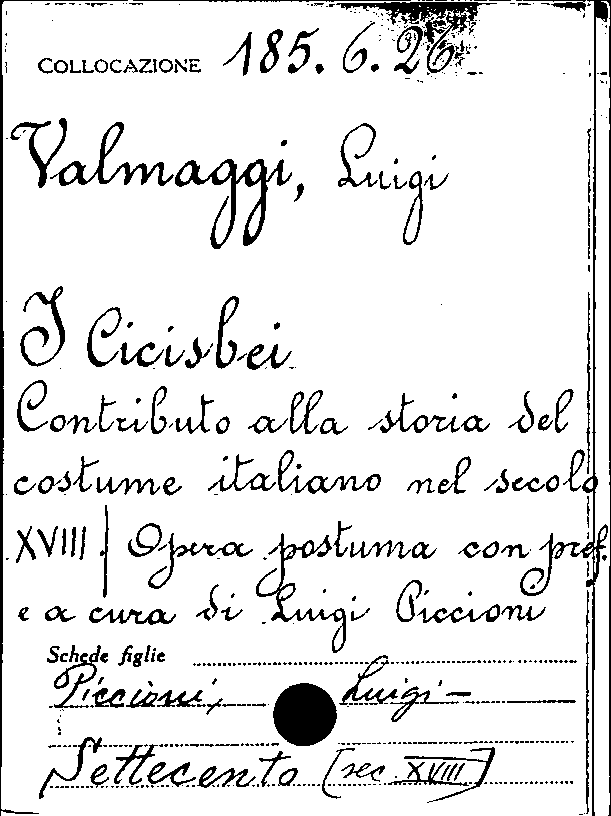 COLLOCAZIONE 185. 6. 26
Valmaggi, Luigi
I Cicisbei
Contributo alla storia del
costume italiano nel secolo
XVIII | Opera postuma con pref.
e a cura di Luigi Piccioni
Schede figlie
Piccioni, Luigi —
Settecento [sec. XVIII]